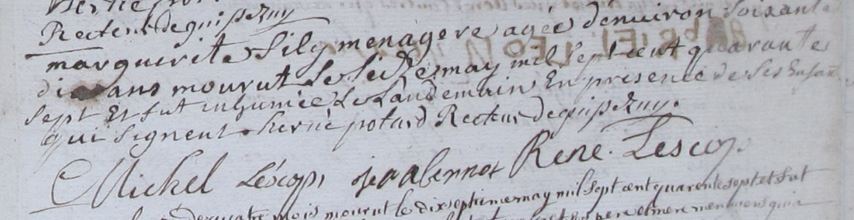 Recteur de guipezuy
marguerite Sily menagere agée denviron soixante
dix ans mourut Le Seize may mil Sept cent quarante
Sept Et fut inhumée Le Landemain En presence de Ses Enfan
qui Signent. hervé potard Recteur de guipezuy.
Michel Lescop jean abennot René. Lescop.
quatre mois mourut le dix septieme may mil sept cent quarente sept et fut
pere et mere